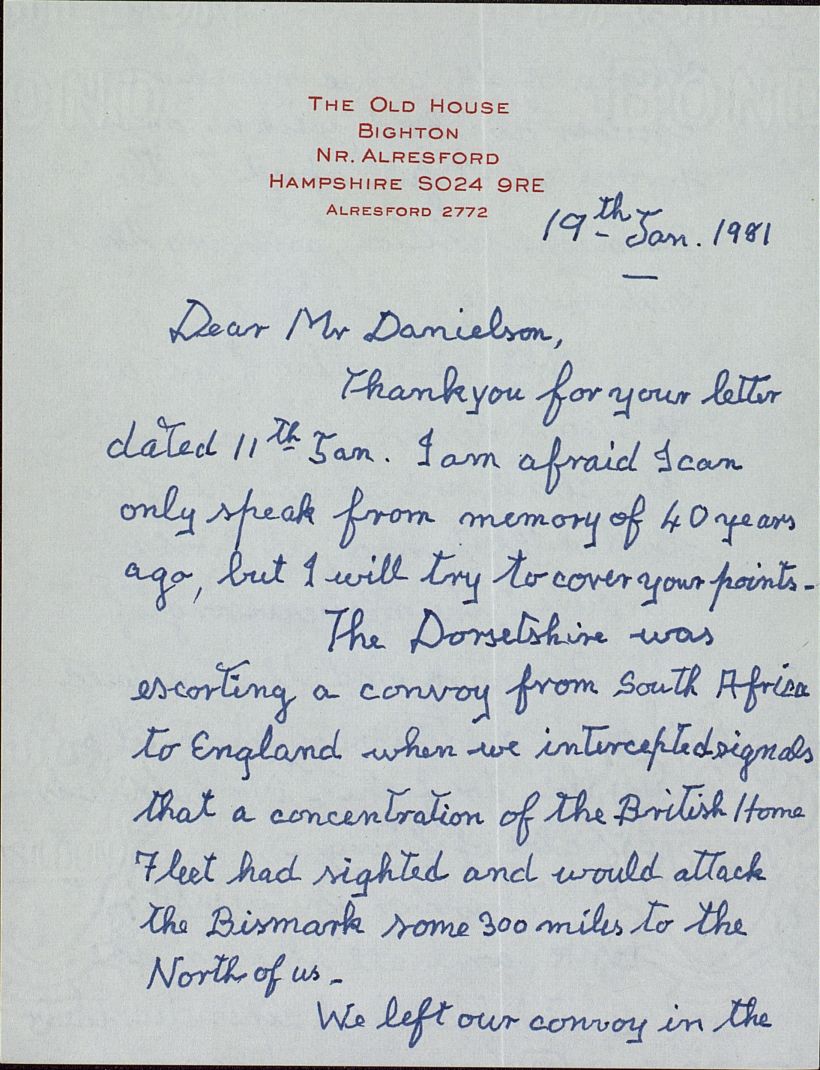 THE OLD HOUSE
BIGHTON
NR. ALRESFORD
HAMPSHIRE SO24 9RE
ALRESFORD 2772
19th Jan. 1981
Dear Mr Danielson,
Thankyou for your letter
dated 11th Jan. I am afraid I can
only speak from memory of 40 years
ago, but I will try to cover your points-
The Dorsetshire was
escorting a convoy from South Africa
to England when we intercepted signals
that a concentration of the British Home
Fleet had sighted and would attack
the Bismark some 300 miles to the
North of us-
We left our convoy in the